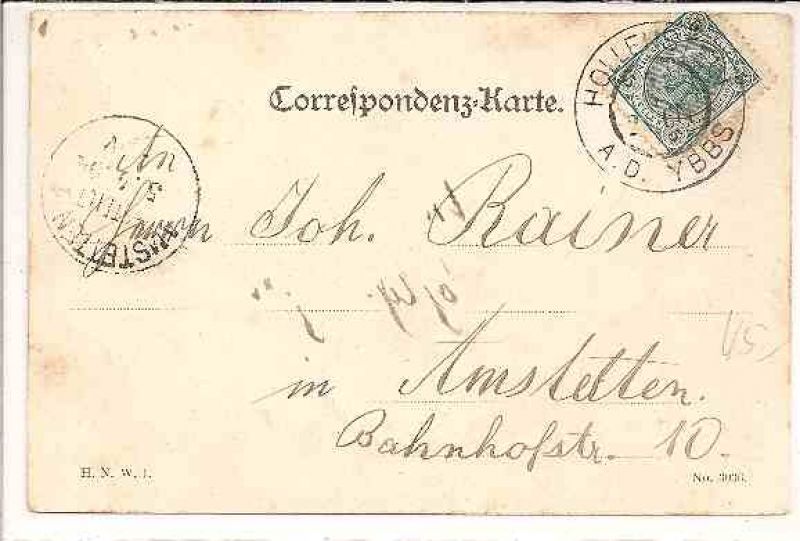 Correspondenz-Karte.
HOLLE
A. D. YBBS
AMSTETTEN
5
An
Herrn Joh. Rainer
in Amstetten.
Bahnhofstr. 10.
H. N. W. I.
No. 3036.